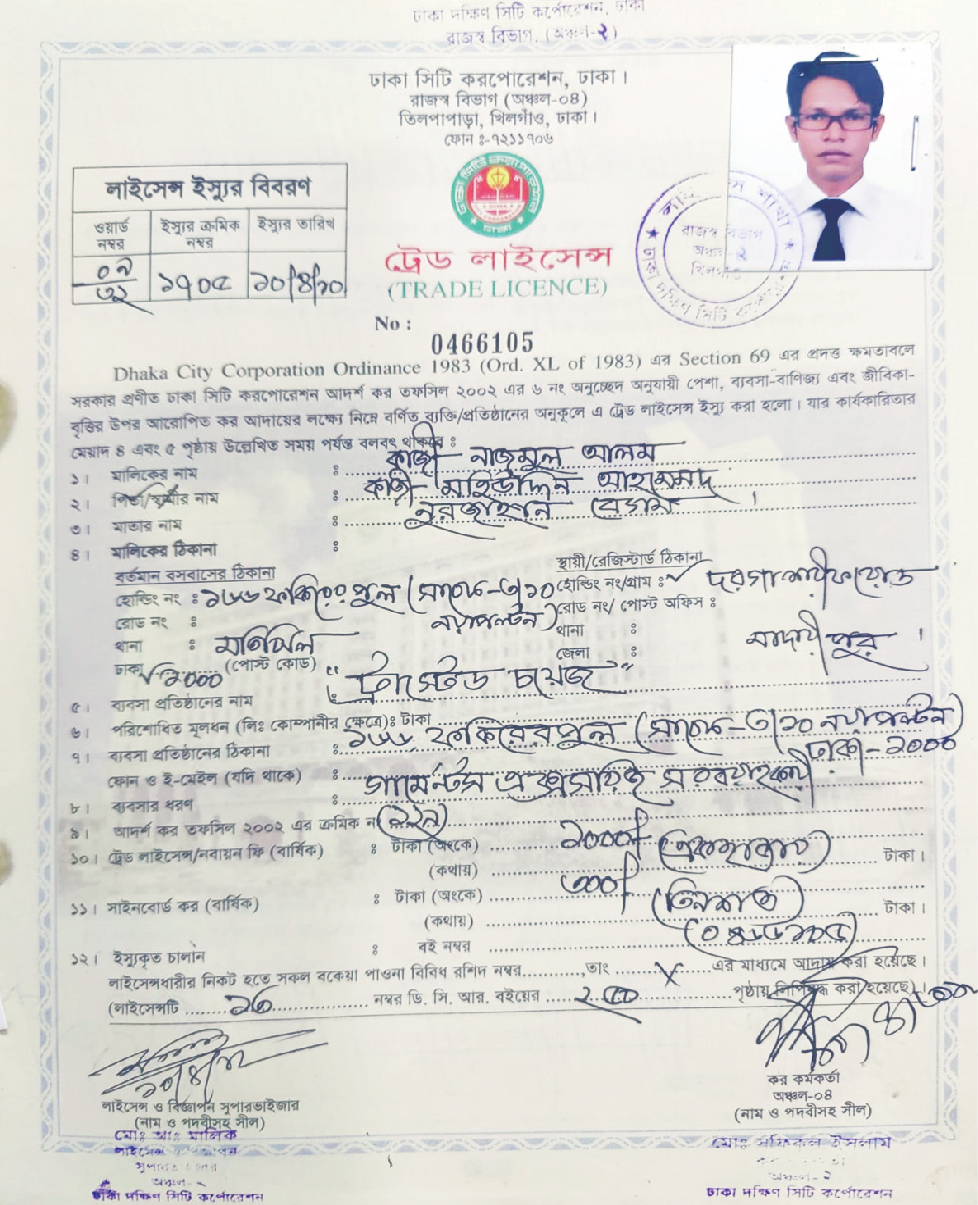 ঢাকা দক্ষিণ সিটি কর্পোরেশন, ঢাকা
রাজস্ব বিভাগ, (অঞ্চল-২)
ঢাকা সিটি করপোরেশন, ঢাকা।
রাজস্ব বিভাগ (অঞ্চল-০৪)
তিলপাপাড়া, খিলগাঁও, ঢাকা।
ফোন ঃ-৭২১১৭০৬
লাইসেন্স ইস্যুর বিবরণ
ওয়ার্ড নম্বর ইস্যুর ক্রমিক নম্বর ইস্যুর তারিখ
১৭০৫
রাজস্ব বিভাগ
অঞ্চল-২
খিলগাঁও
ট্রেড লাইসেন্স
(TRADE LICENCE)
No :
0466105
Dhaka City Corporation Ordinance 1983 (Ord. XL of 1983) এর Section 69 এর প্রদত্ত ক্ষমতাবলে
সরকার প্রণীত ঢাকা সিটি করপোরেশন আদর্শ কর তফসিল ২০০২ এর ৬ নং অনুচ্ছেদ অনুযায়ী পেশা, ব্যবসা-বাণিজ্য এবং জীবিকা-
বৃত্তির উপর আরোপিত কর আদায়ের লক্ষ্যে নিম্নে বর্ণিত ব্যক্তি/প্রতিষ্ঠানের অনুকূলে এ ট্রেড লাইসেন্স ইস্যু করা হলো। যার কার্যকারিতার
মেয়াদ ৪ এবং ৫ পৃষ্ঠায় উল্লেখিত সময় পর্যন্ত বলবৎ থাকিবে ঃ
১। মালিকের নাম ঃ কাজী নাজমুল আলম
২। পিতা/স্বামীর নাম ঃ কাজী মহিউদ্দিন আহমেদ
৩। মাতার নাম ঃ নুরজাহান বেগম।
৪। মালিকের ঠিকানা ঃ
বর্তমান বসবাসের ঠিকানা স্থায়ী/রেজিস্টার্ড ঠিকানা
হোল্ডিং নং ঃ ১৬৬ ফকিরেরপুল হোল্ডিং নং/গ্রাম ঃ
রোড নং ঃ নয়াপল্টন) রোড নং/ পোস্ট অফিস ঃ
থানা ঃ মতিঝিল থানা ঃ
ঢাকা ১০০০ (পোস্ট কোড) জেলা ঃ মাদারীপুর।
৫। ব্যবসা প্রতিষ্ঠানের নাম "ট্রাস্টেড চয়েজ"
৬। পরিশোধিত মূলধন (লিঃ কোম্পানীর ক্ষেত্রে)ঃ টাকা
৭। ব্যবসা প্রতিষ্ঠানের ঠিকানা ঃ ১৬৬ ফকিরেরপুল নয়াপল্টন)
ঢাকা-১০০০
ফোন ও ই-মেইল (যদি থাকে) ঃ
৮। ব্যবসার ধরণ ঃ গার্মেন্টস এক্সেসরিজ সরবরাহকারী
৯। আদর্শ কর তফসিল ২০০২ এর ক্রমিক ন
১০। ট্রেড লাইসেন্স/নবায়ন ফি (বার্ষিক) ঃ টাকা (অংকে) ১০০০/
(কথায়) (একহাজার) টাকা।
১১। সাইনবোর্ড কর (বার্ষিক) ঃ টাকা (অংকে) ৩০০/
(কথায়) (তিনশত) টাকা।
১২। ইস্যুকৃত চালান ঃ বই নম্বর
লাইসেন্সধারীর নিকট হতে সকল বকেয়া পাওনা বিবিধ রশিদ নম্বর..........,তাং ....X.... এর মাধ্যমে আদায় করা হয়েছে।
(লাইসেন্সটি ........ নম্বর ডি. সি. আর. বইয়ের ........ পৃষ্ঠায় লিপিবদ্ধ করা হয়েছে)।
লাইসেন্স ও বিজ্ঞাপন সুপারভাইজার
(নাম ও পদবীসহ সীল)
মোঃ আঃ মালিক
ঢাকা দক্ষিণ সিটি কর্পোরেশন
কর কর্মকর্তা
অঞ্চল-০৪
(নাম ও পদবীসহ সীল)
মোঃ সফিকুল ইসলাম
অঞ্চল-২
ঢাকা দক্ষিণ সিটি কর্পোরেশন